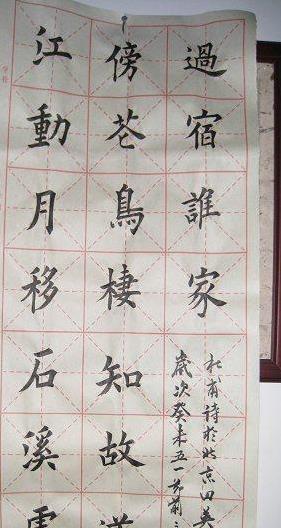 江動月移石溪
傍芲鳥棲知故道
過宿誰家
歲次癸未五一节前
杜甫詩於北京田